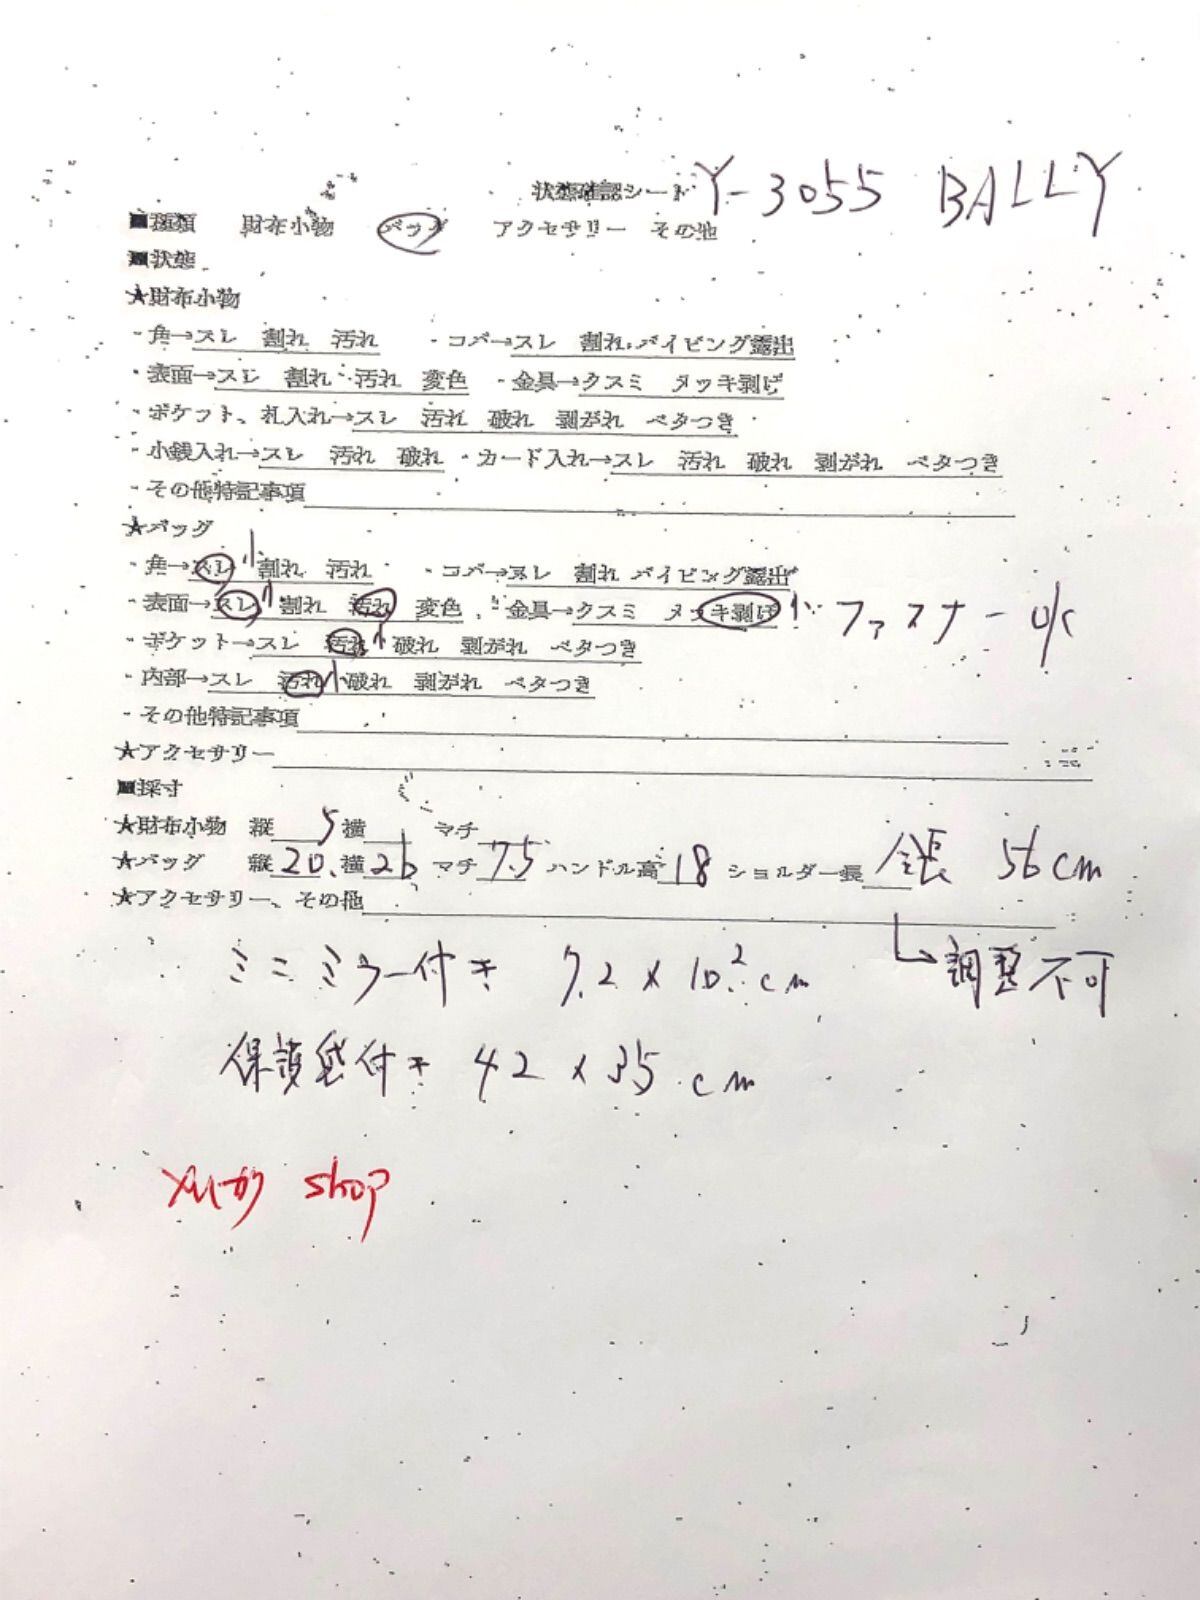 状態確認シート Y-3055 BALLY
■種類 財布小物 バッグ アクセサリー その他
■状態
★財布小物
・角→スレ 割れ 汚れ ・コバ→スレ 割れ パイピング露出
・表面→スレ 割れ 汚れ 変色 ・金具→クスミ メッキ剥げ
・ポケット、札入れ→スレ 汚れ 破れ 剥がれ ベタつき
・小銭入れ→スレ 汚れ 破れ ・カード入れ→スレ 汚れ 破れ 剥がれ ベタつき
・その他特記事項
★バッグ
・角→スレ 小 割れ 汚れ ・コバ→スレ 割れ パイピング露出
・表面→スレ 小 割れ 汚れ 変色 ・金具→クスミ メッキ剥げ 小 ファスナー o/c
・ポケット→スレ 汚れ 小 破れ 剥がれ ベタつき
・内部→スレ 汚れ 小 破れ 剥がれ ベタつき
・その他特記事項
★アクセサリー
■採寸
★財布小物 縦 5 横 マチ
★バッグ 縦 20. 横 26 マチ 7.5 ハンドル高 18 ショルダー長 全長 56cm
★アクセサリー、その他
調整不可
ミニミラー付き 7.2 x 10.2 cm
保護袋付き 42 x 35 cm
shop